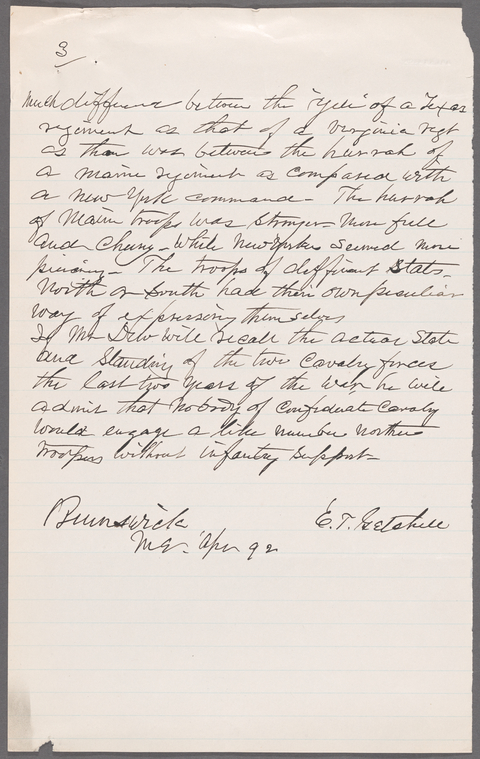 3
Much difference between the "Yell" of a Texas
regiment as that of a Virginia regt
as than was between the hurrah of
a maine regiment as compared with
a New York command - The hurrah
of Maine troops was stronger - more full
and Cheery - while New Yorkers seemed more
piercing - The troops of different States -
North or South had their own peculiar
way of expressing themselves
If Mr Dew will recall the actual State
and Standing of the two Cavalry forces
the last two years of the War he will
admit that no body of Confederate Cavalry
would engage a like number Northern
troopers without infantry support -
Brunswick E. T. Getchell
Me - Apr 92